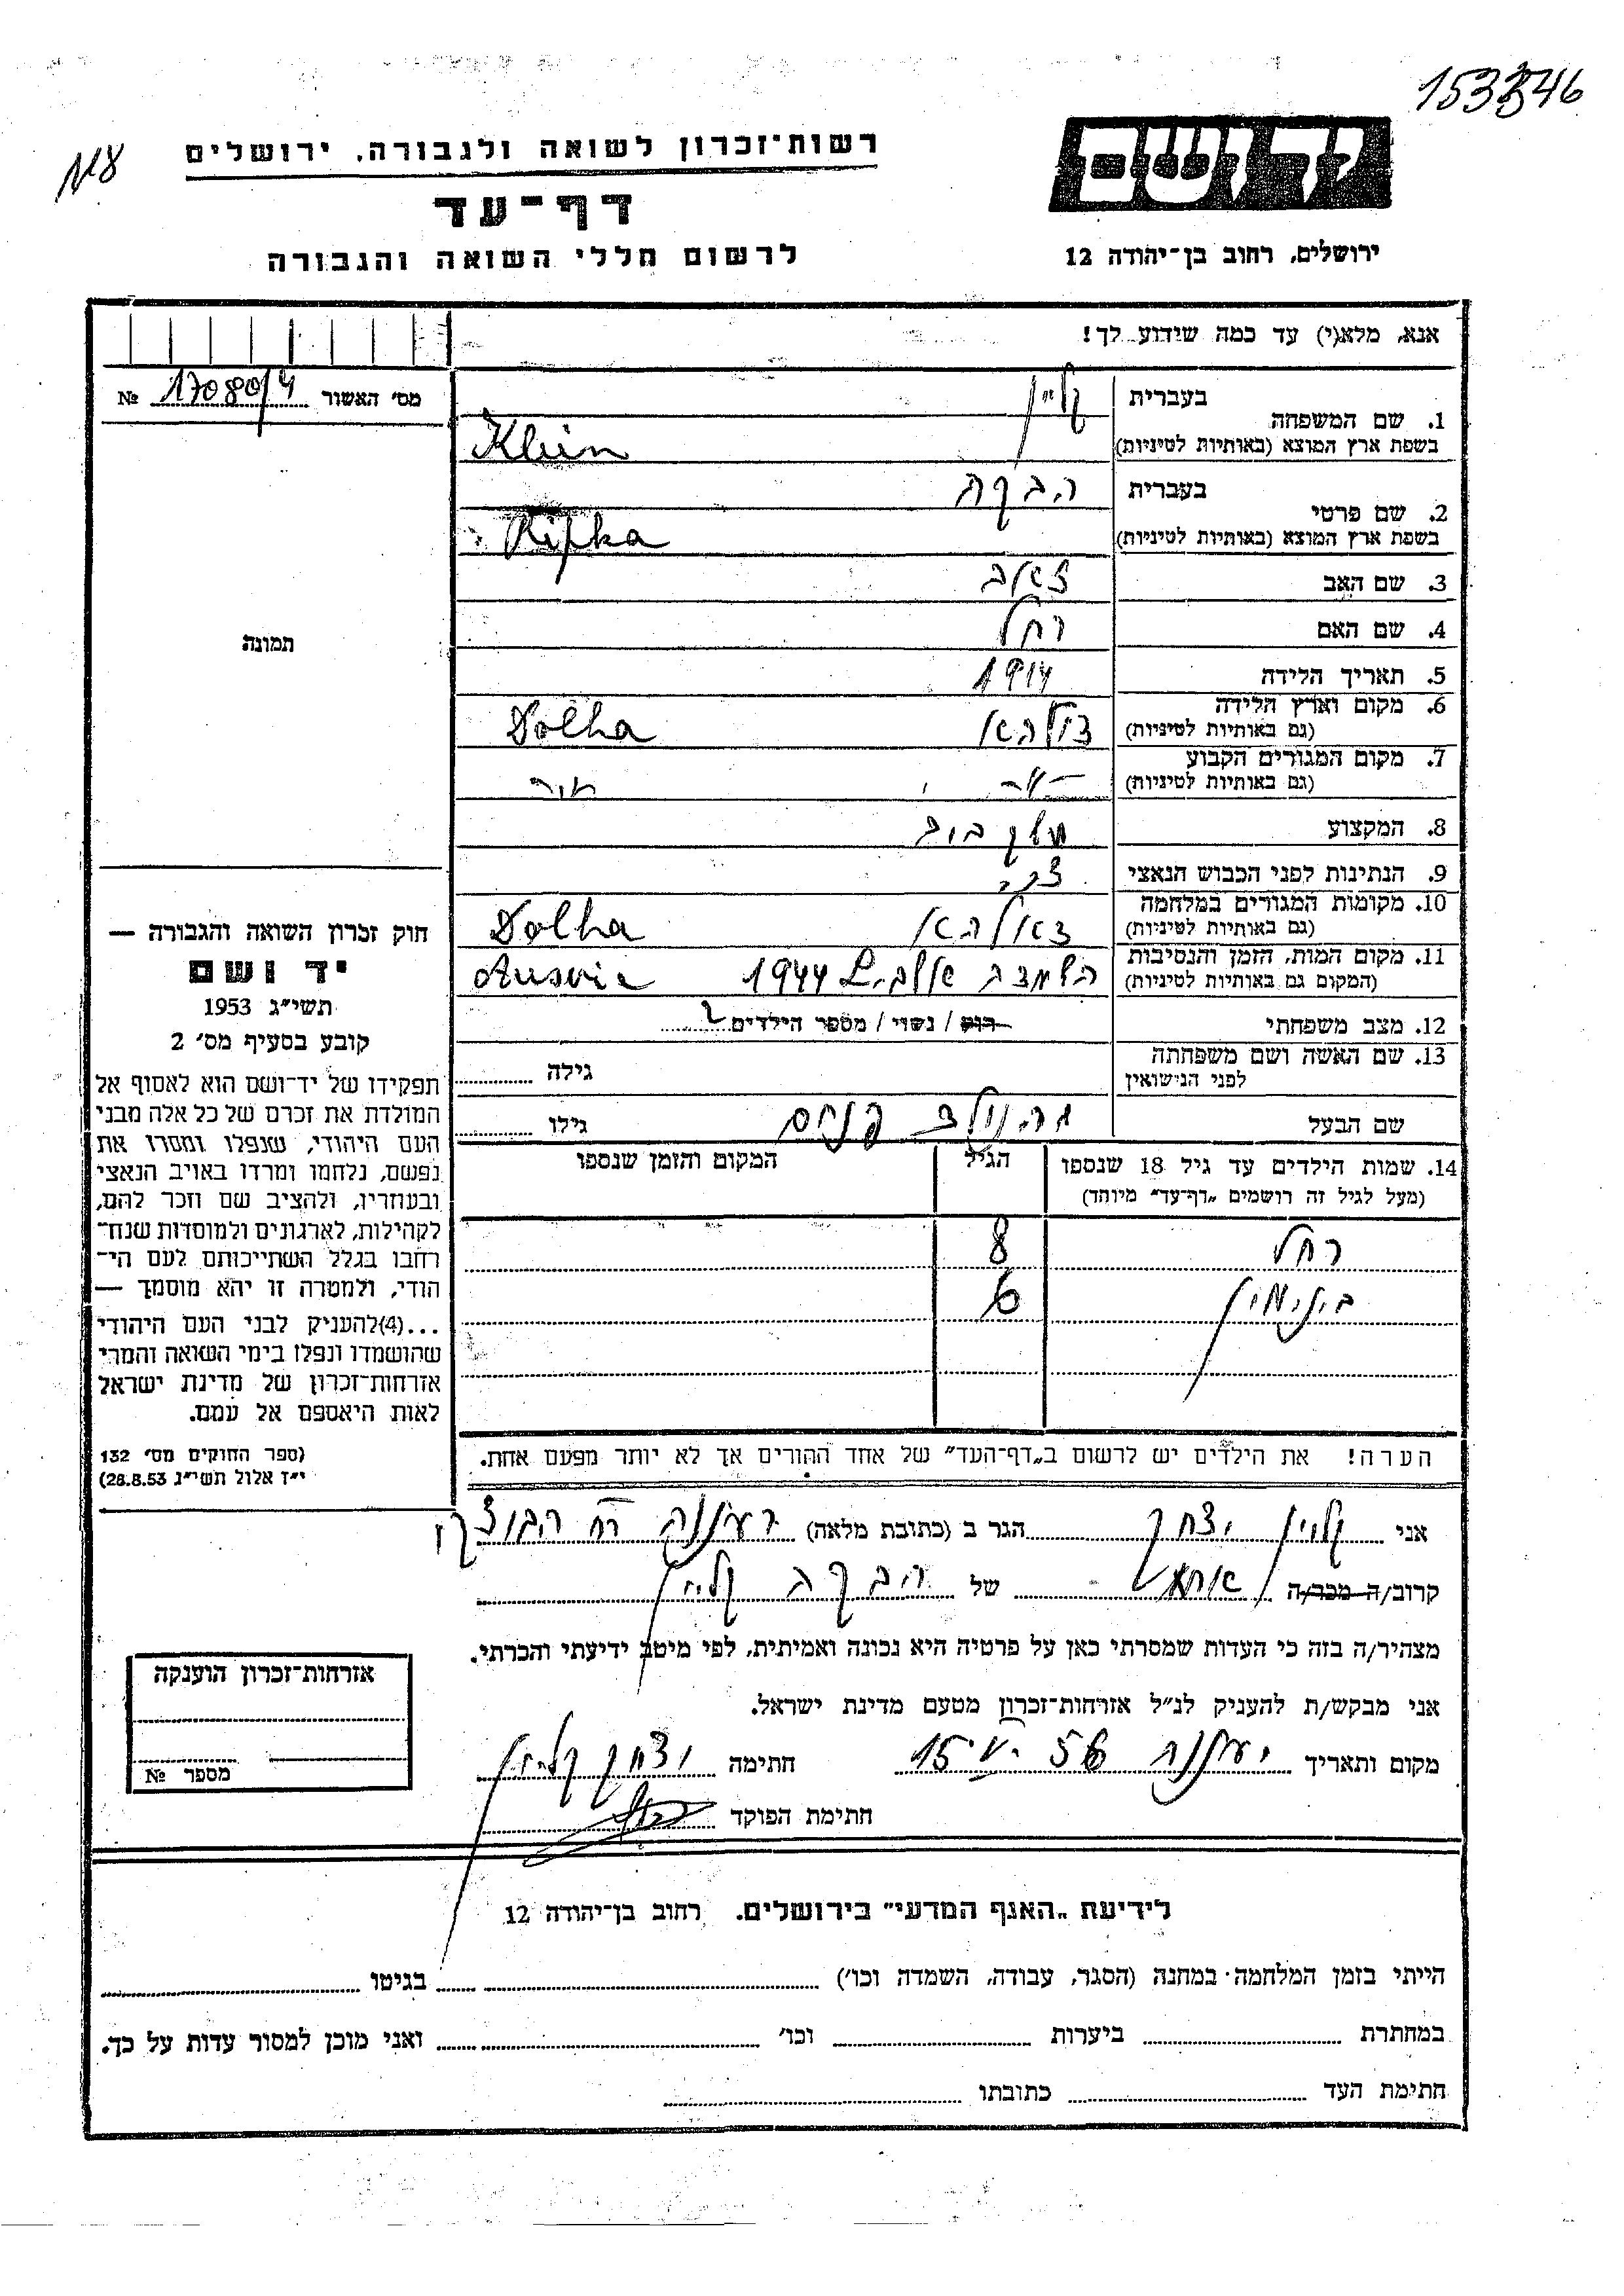 153346
N8
רשות־זכרון לשואה ולגבורה, ירושלים
דף־עד
לרשום חללי השואה והגבורה
יד ושם
ירושלים, רחוב בן־יהודה 12
אנא, מלא(י) עד כמה שידוע לך!
מס׳ האשור 17080/4 №
1. שם המשפחה
בעברית קליין
בשפת ארץ המוצא (באותיות לטיניות) Klein
2. שם פרטי
בעברית הבקה
בשפת ארץ המוצא (באותיות לטיניות) Ripka
3. שם האב זאב
4. שם האם רחל
5. תאריך הלידה 1914
6. מקום וארץ הלידה
(גם באותיות לטיניות) דולהא Dolha
7. מקום המגורים הקבוע
(גם באותיות לטיניות)
8. המקצוע
9. הנתינות לפני הכבוש הנאצי
10. מקומות המגורים במלחמה
(גם באותיות לטיניות) דאלהא Dolha
11. מקום המות, הזמן והנסיבות
(המקום גם באותיות לטיניות) 1944 Ausvic
12. מצב משפחתי רוק / נשוי / מספר הילדים 2
13. שם האשה ושם משפחתה
לפני הנישואין
גילה
שם הבעל
גילו
14. שמות הילדים עד גיל 18 שנספו
(מעל לגיל זה רושמים „דף־עד״ מיוחד)
הגיל
המקום והזמן שנספו
רחל 8
בינימין 6
הערה! את הילדים יש לרשום ב„דף־העד״ של אחד ההורים אך לא יותר מפעם אחת.
תמונה
חוק זכרון השואה והגבורה —
יד ושם
תשי״ג 1953
קובע בסעיף מס׳ 2
תפקידו של יד־ושם הוא לאסוף אל
המולדת את זכרם של כל אלה מבני
העם היהודי, שנפלו ומסרו את
נפשם, נלחמו ומרדו באויב הנאצי
ובעוזריו, ולהציב שם וזכר להם,
לקהילות, לארגונים ולמוסדות שנח־
רחבו בגלל השתייכותם לעם הי־
הודי, ולמטרה זו יהא מוסמך —
...(4)להעניק לבני העם היהודי
שהושמדו ונפלו בימי השואה והמרי
אזרחות־זכרון של מדינת ישראל
לאות היאספם אל עמם.
(ספר החוקים מס׳ 132
י״ז אלול תשי״ג 28.8.53)
אני קליין יצחק הגר ב (כתובת מלאה) רעננה רח
קרוב/ה מכר/ה של הבקה קליין
מצהיר/ה בזה כי העדות שמסרתי כאן על פרטיה היא נכונה ואמיתית, לפי מיטב ידיעתי והכרתי.
אני מבקש/ת להעניק לנ״ל אזרחות־זכרון מטעם מדינת ישראל.
מקום ותאריך רעננה 56 15 חתימה יצחק קליין
חתימת הפוקד
אזרחות־זכרון הוענקה
מספר №
לידיעת „האגף המדעי״ בירושלים. רחוב בן־יהודה 12
הייתי בזמן המלחמה במחנה (הסגר, עבודה, השמדה וכו׳) בגיטו
במחתרת ביערות וכו׳ ואני מוכן למסור עדות על כך.
חתימת העד כתובתו